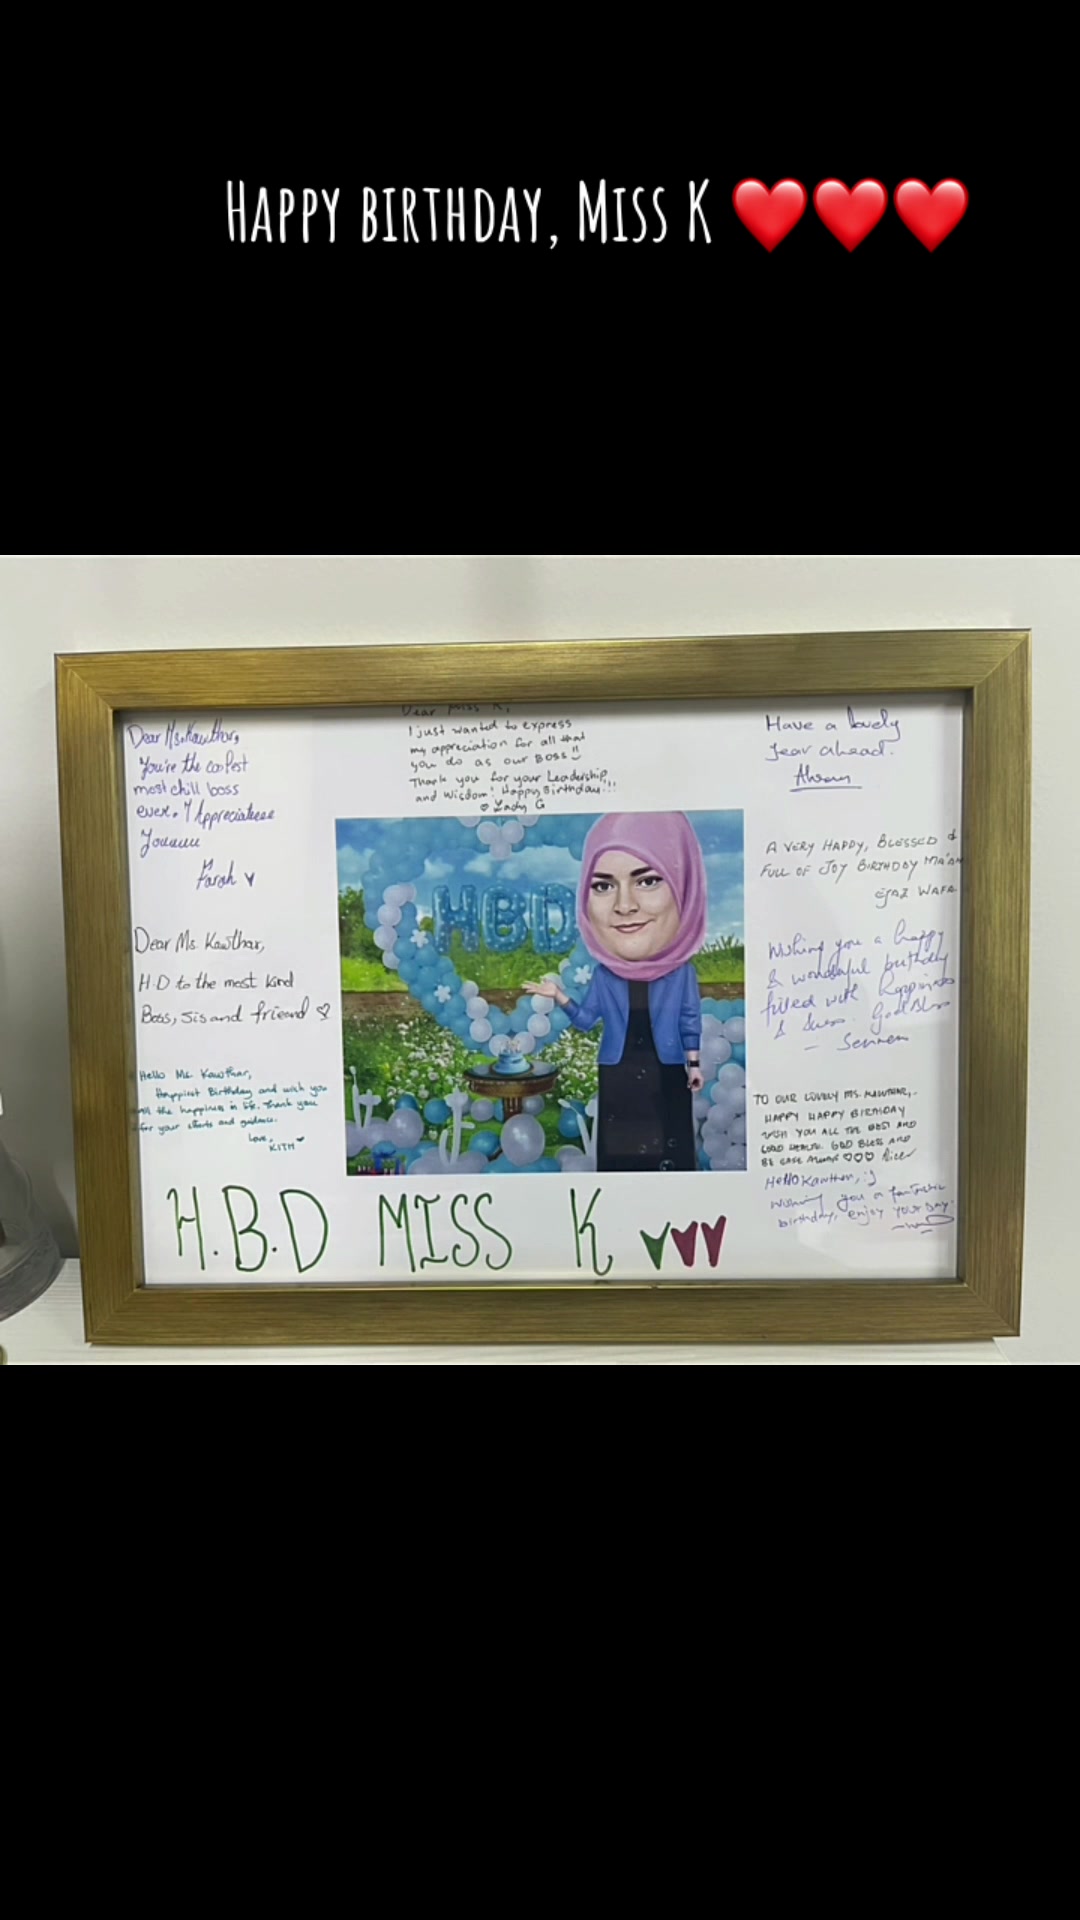 HAPPY BIRTHDAY, MISS K ❤️❤️❤️
Dear Ms. Kawthar,
You're the coolest
most chill boss
ever. I Appreciateee
Youuuu
Farah ♥
Dear Miss K,
I just wanted to express
my appreciation for all that
you do as our BOSS!!
Thank you for your Leadership
and Wisdom! Happy Birthday!!!
♡ Lady G
Have a lovely
year ahead.
A VERY HAPPY, BLESSED &
FULL OF JOY BIRTHDAY MA'AM
EJAZ WAFA
Dear Ms. Kawthar,
H.D to the most kind
Boss, sis and frieand ♡
Wishing you a happy
& wonderful birthday
filled with Happiness
& God Bless
Hello Ms. Kawthar,
Happiest Birthday and wish you
all the happiness in life. Thank you
for your efforts and guidance.
Love,
KITH ♥
TO OUR LOVELY MS. KAWTHAR,
HAPPY HAPPY BIRTHDAY
WISH YOU ALL THE BEST AND
GOOD HEALTH. GOD BLESS AND
BE SAFE ALWAYS ♡♡♡
Hello Kawthar, :)
Wishing you a fantastic
birthday, enjoy your day.
HBD
H.B.D MISS K ♥♥♥